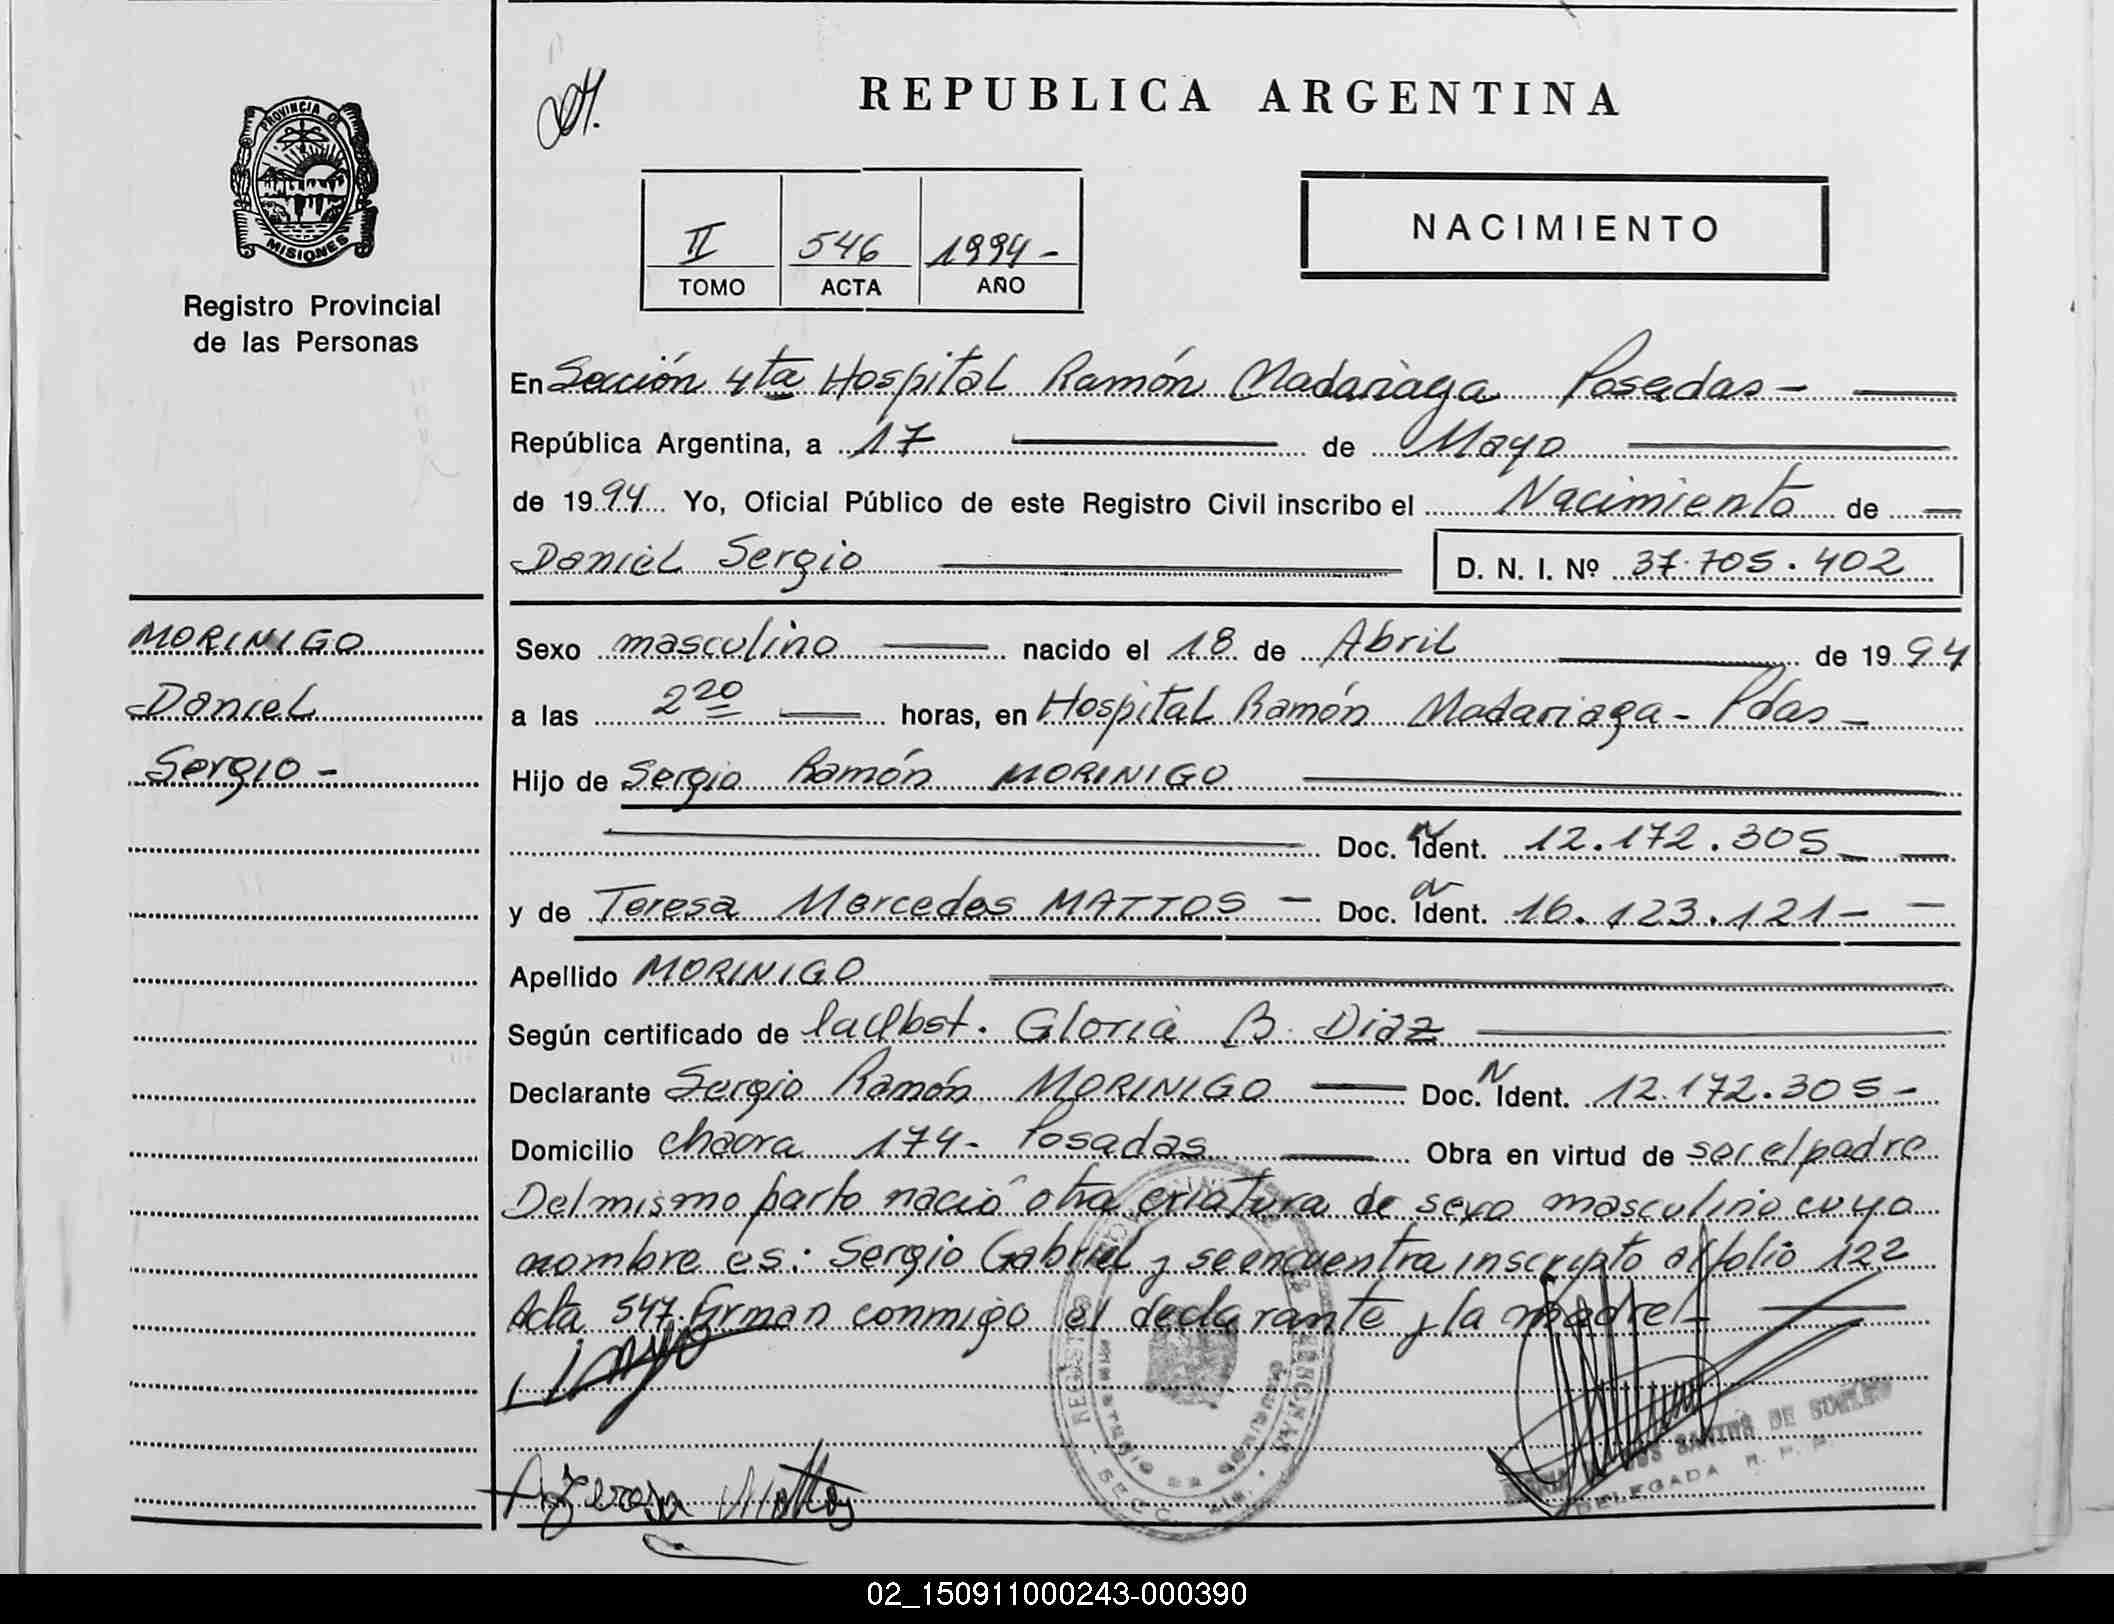 REPUBLICA ARGENTINA
PROVINCIA DE
MISIONES
Registro Provincial
de las Personas
II 546 1994-
TOMO ACTA AÑO
NACIMIENTO
En Sección 4ta Hospital Ramón Madariaga Posadas-
República Argentina, a 17 de Mayo
de 1994 Yo, Oficial Público de este Registro Civil inscribo el Nacimiento de
Daniel Sergio D. N. I. Nº 37.705.402
MORINIGO
Daniel
Sergio-
Sexo masculino nacido el 18 de Abril de 1994
a las 2 20 horas, en Hospital Ramón Madariaga- Pdas-
Hijo de Sergio Ramón MORINIGO
Doc. N Ident. 12.172.305
y de Teresa Mercedes MATTOS - Doc. N Ident. 16.123.121-
Apellido MORINIGO
Según certificado de la Obst. Gloria B. Diaz
Declarante Sergio Ramón MORINIGO Doc. N Ident. 12.172.305-
Domicilio chacra 174- Posadas Obra en virtud de ser el padre
Del mismo parto nació otra criatura de sexo masculino cuyo
nombre es: Sergio Gabriel y se encuentra inscripto al folio 122
Acta 547. Firman conmigo el declarante y la madre-
Teresa Mattos
DOS SANTOS DE
DELEGADA R. P. P.
02_150911000243-000390